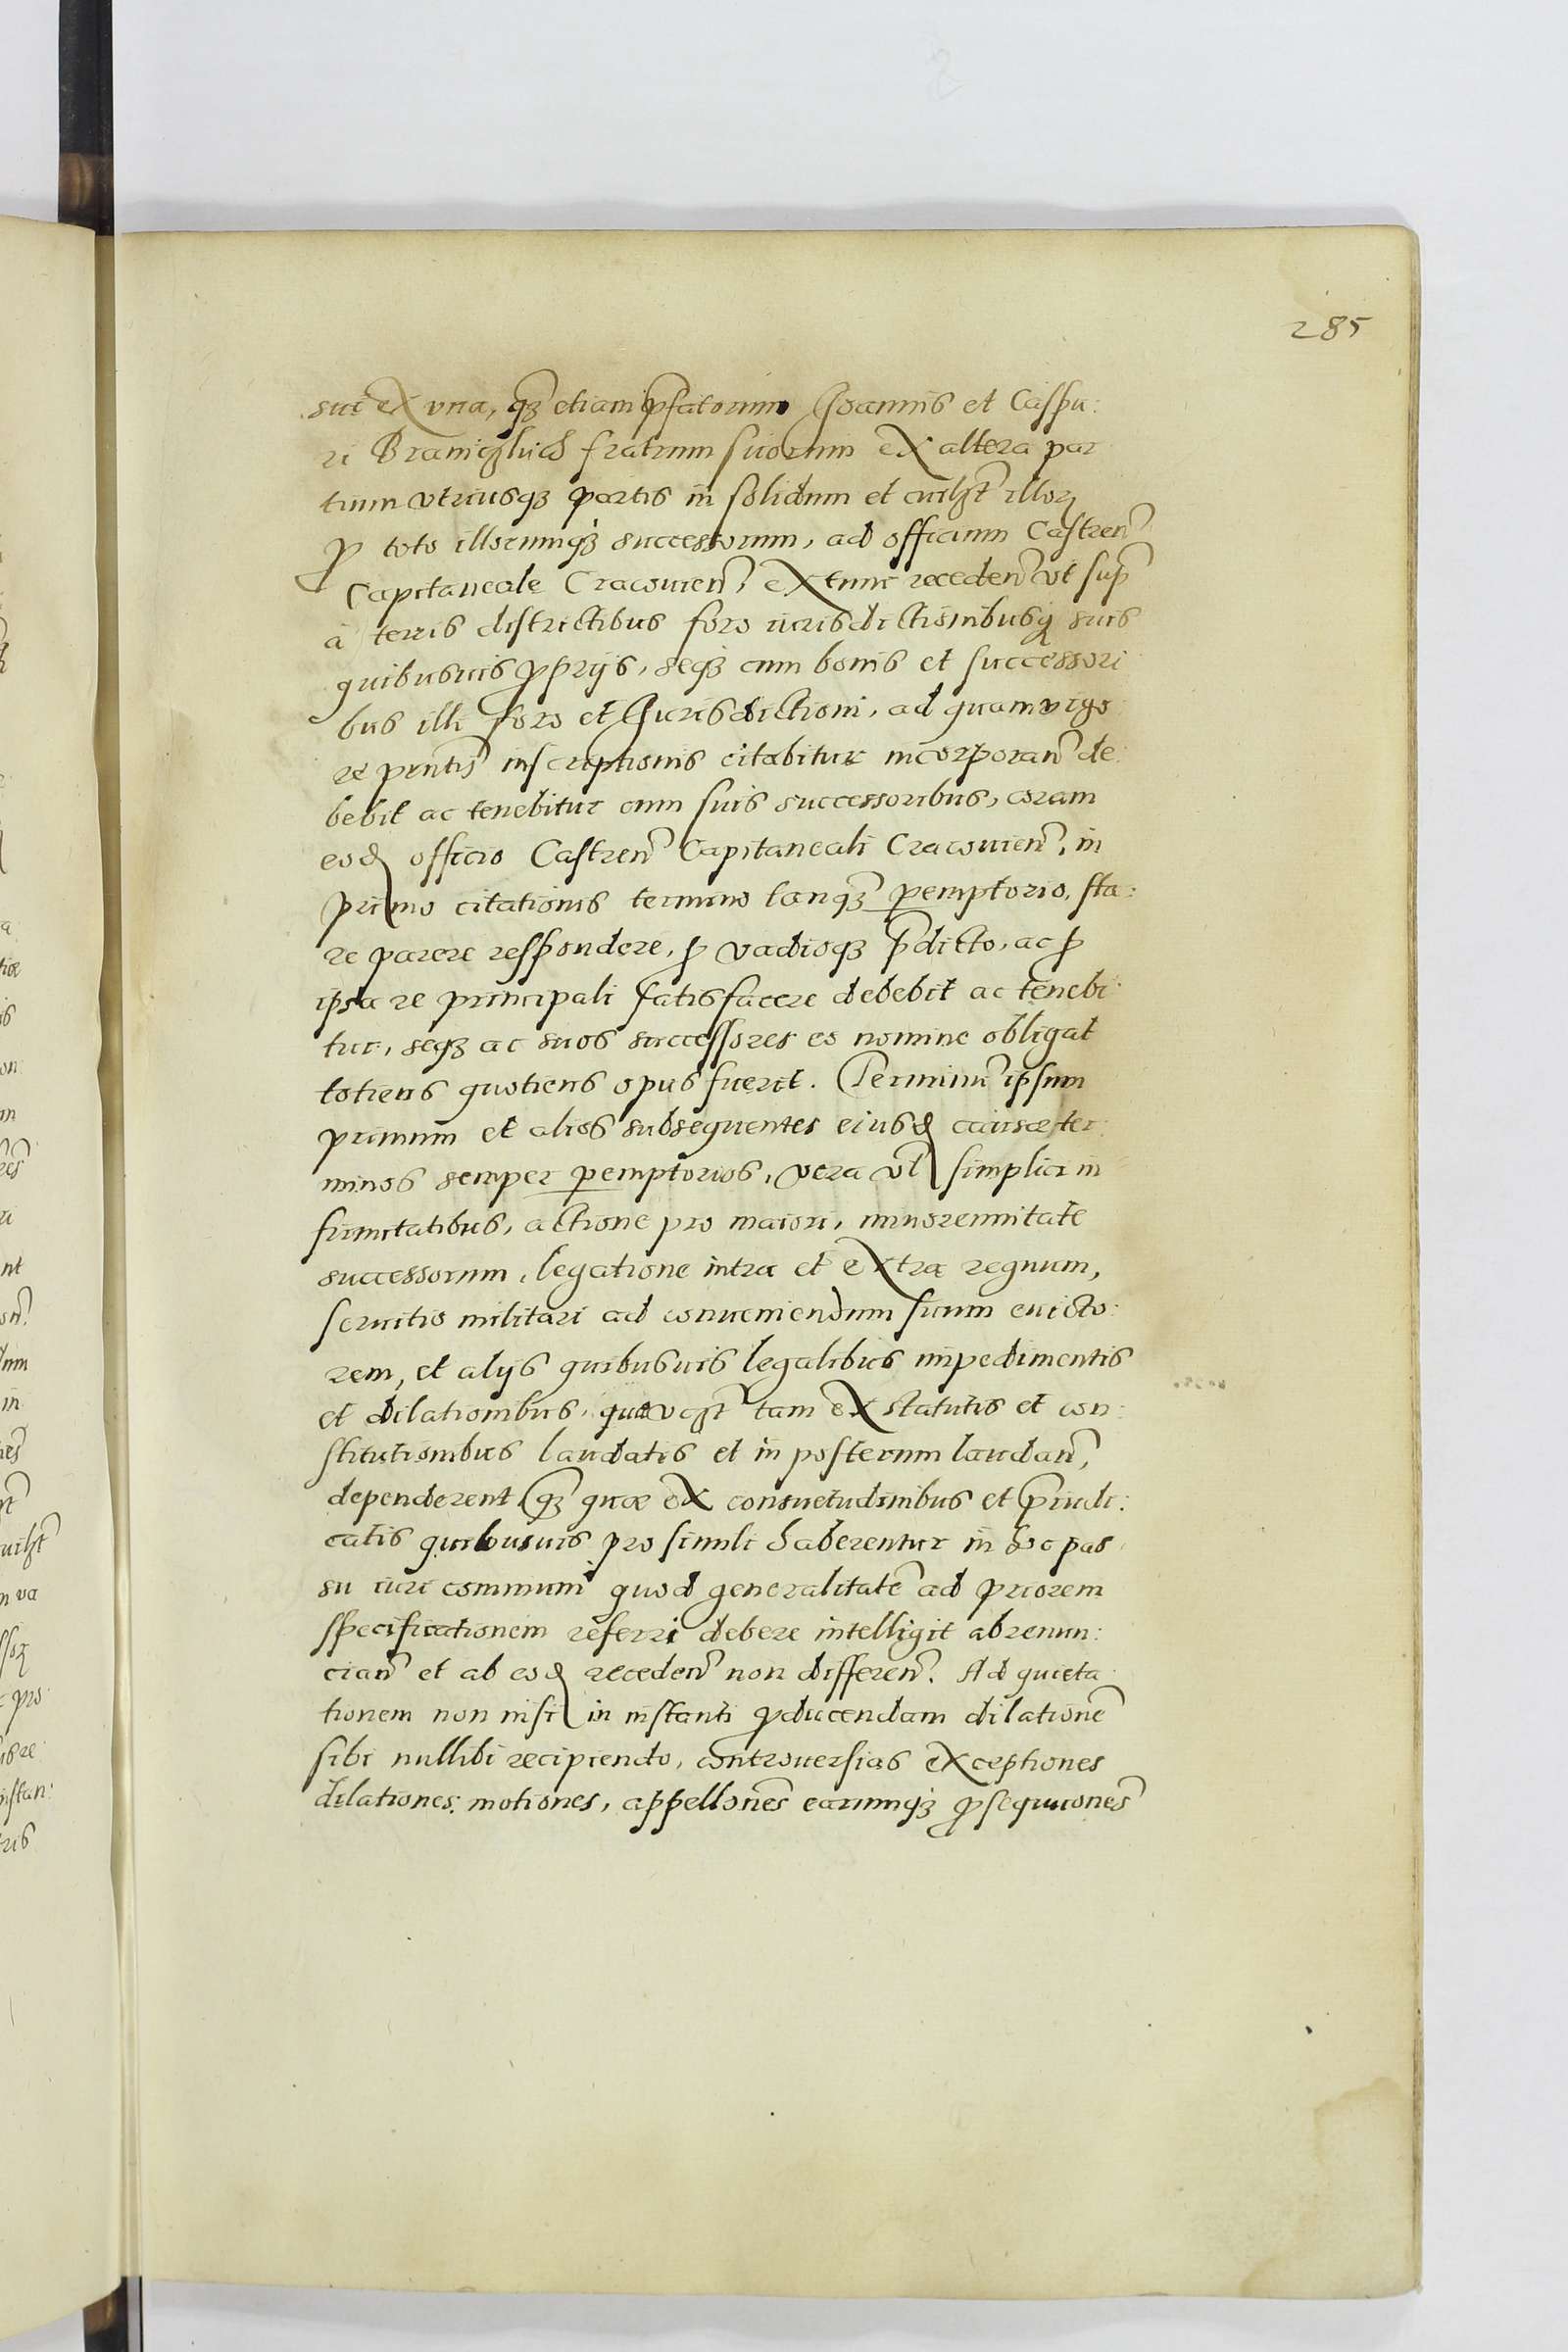 285
sui ex vna, qz etiam pfatorum Joannis et Caspa:
ri Braniczkich fratrum suorum ex altera par
tium vtriusqz partis in solidum et cuilzt illorz
p toto illorumqz successorum, ad officium Castren
Capitaneale Cracouien, extunc receden vt sup
à terris districtibus foro iurisdictionibusqz suis
quibusuis pprijs, seqz cum bonis et successori
bus illi foro et Jurisdictioni, ad quam vigo
re pntis inscriptionis citabitur incorporan de:
bebit ac tenebitur cum suis successoribus, coram
eod officio Castren Capitaneali Cracouien, in
primo citationis termino tanqz peremptorio, sta:
re parere respondere, p vadioqz pdicto, ac p
ipsa re principali satisfacere debebit ac tenebi
tur, seqz ac suos successores eo nomine obligat
totiens quotiens opus fuerit. Terminu ipsum
primum et alios subsequentes eiusd causæ ter:
minos semper peremptorios, vera vl simplici in
firmitatibus, actione pro maiori, minorennitate
successorum, legatione intra et extra regnum,
seruitio militari ad conueniendum suum euicto:
rem, et alijs quibusuis legalibus impedimentis
et dilationibus, quæ vczt tam ex statutis et con:
stitutionibus laudatis et in posterum laudan,
dependerent qz quæ ex consuetudinibus et piudi:
catis quibusuis pro simili haberentur in hoc pas
su iuri communi quod generalitate ad priorem
specificationem referri debere intelligit abrenun:
cian et ab eod receden non differen. Ad quieta
tionem non nisi in instanti pducendam dilatione
sibi nullibi recipiendo, controuersias exceptiones
dilationes, motiones, appellones earumqz psequucones